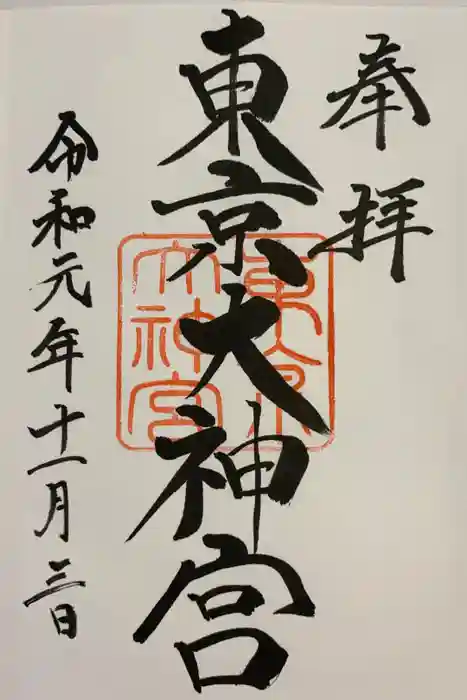 奉拝
東京大神宮
東京
大神宮
令和元年十一月三日